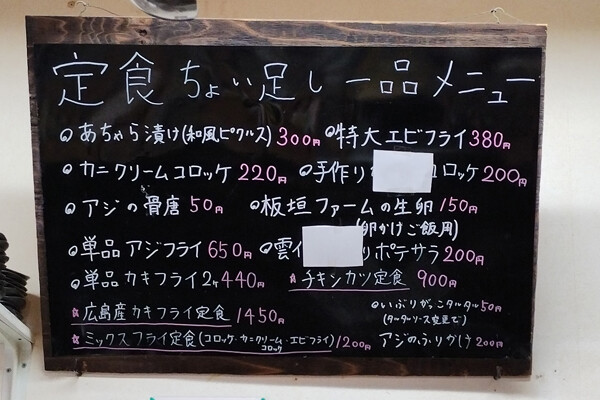 定食ちょい足し一品メニュー
あちゃら漬け(和風ピクルス)300円
特大エビフライ380円
カニクリームコロッケ220円
手作り ロッケ200円
アジの骨唐50円
板垣ファームの生卵150円
(卵かけご飯用)
単品アジフライ650円
雲 りポテサラ200円
単品カキフライ2ヶ440円
☆チキンカツ定食900円
☆広島産カキフライ定食1450円
いぶりがっこタルタル50円
(タルタルソース変更で)
☆ミックスフライ定食(コロッケ・カニクリームコロッケ・エビフライ)1200円
アジのふりかけ200円